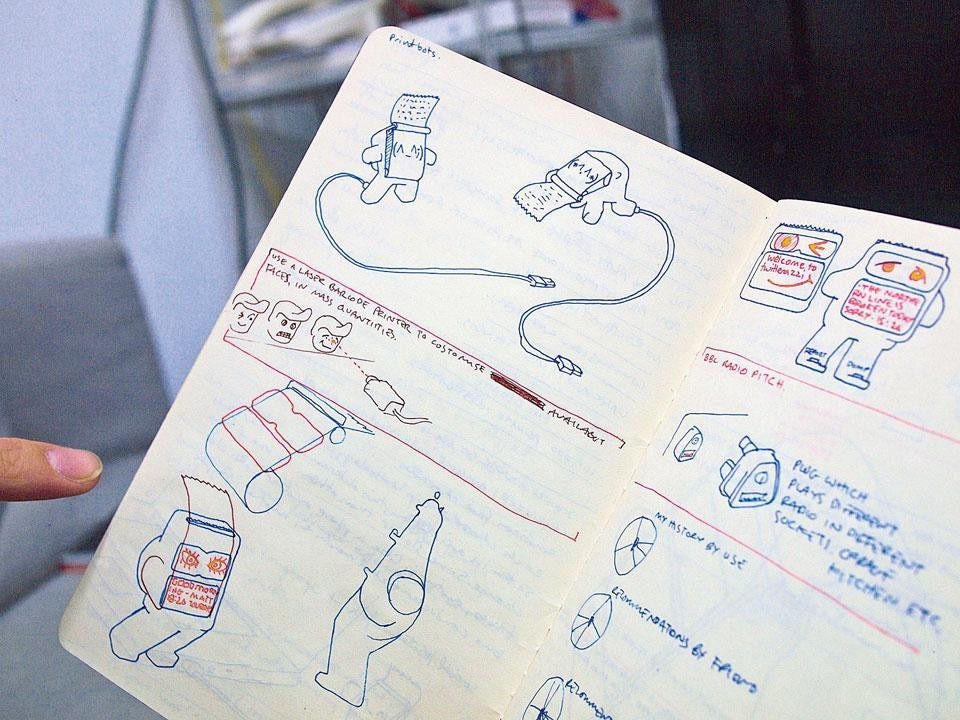 Printbots.
(^_^;)
USE A LASER BARCODE PRINTER TO COSTOMISE
FACES, IN MASS QUANTITIES.
GOOD MORN
ING - MATT
welcome, to
THE NORTHE
RN LINE IS
BROKEN TODAY
SORRY.
BBC RADIO PITCH.
PLUG WHICH
PLAYS DIFFERENT
RADIO IN DIFFERENT
SOCKETS.
KITCHEN ETC.
MY HISTORY BY USE
RECOMMENDATIONS BY FRIEND